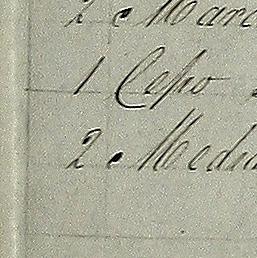 2 Marc
1 Cepo
2 Media